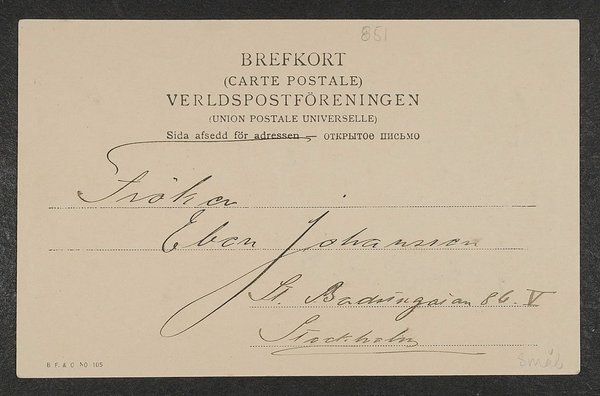 851
BREFKORT
(CARTE POSTALE)
VERLDSPOSTFÖRENINGEN
(UNION POSTALE UNIVERSELLE)
Sida afsedd för adressen — ОТКРЫТОЕ ПИСЬМО
Fröken
Eben Johansson
St Badstugatan 86. V
Stockholm
B F. & C NO 105
Smål